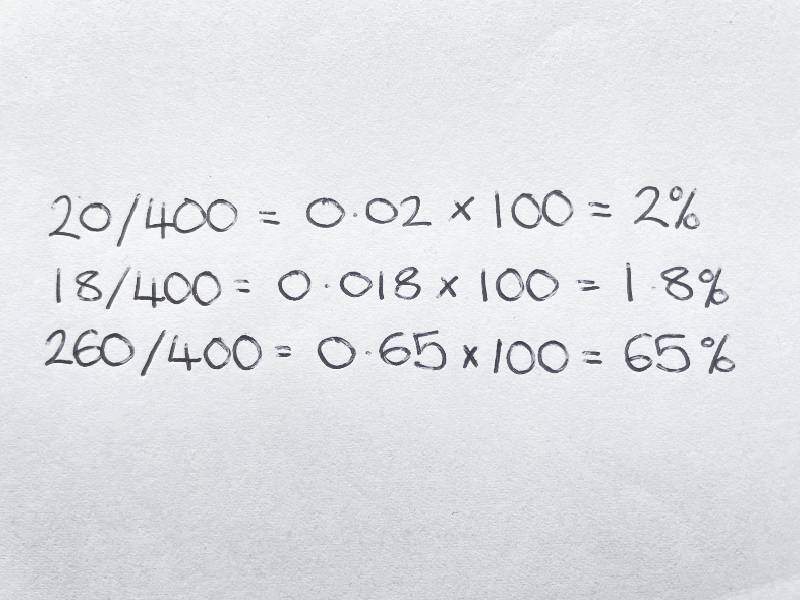 20/400 = 0.02 × 100 = 2%
18/400 = 0.018 × 100 = 1.8%
260/400 = 0.65 × 100 = 65%